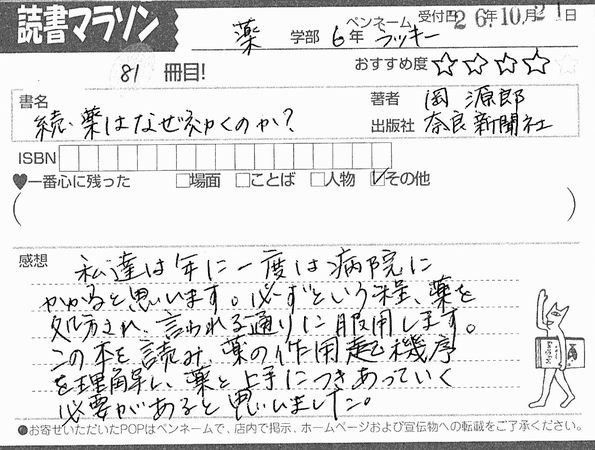 読書マラソン
薬 学部 6年 ペンネーム ラッキー 受付 26年10月21日
81 冊目! おすすめ度 ☆☆☆☆☆
書名 著者 岡 源郎
続・薬はなぜ効くのか? 出版社 奈良新聞社
ISBN
♥一番心に残った □場面 □ことば □人物 ☑その他
( )
感想
私達は年に一度は病院に
かかると思います。必ずという程、薬を
処方され、言われる通りに服用します。
この本を読み、薬の作用機序
を理解し、薬と上手につきあっていく
必要があると思いました。
●お寄せいただいたPOPはペンネームで、店内で掲示、ホームページおよび宣伝物への転載をご了承ください。